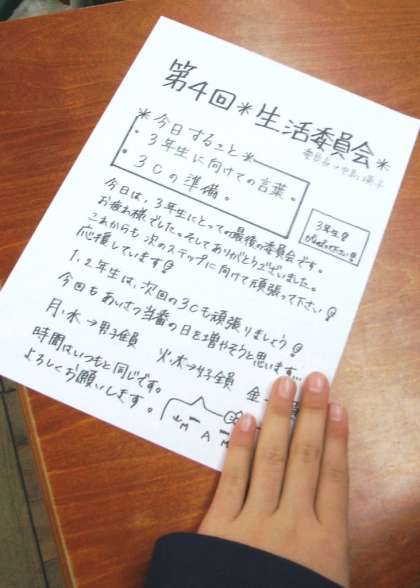 第4回*生活委員会*
*今日すること*
・3年生に向けての言葉。
・3Cの準備。
3年生❢
がんばって下さい❢
今日は、3年生にとっての最後の委員会です。
お疲れ様でした。そしてありがとうございました。
これからも次のステップに向けて頑張って下さい❢
応援しています❢
1、2年生は、次回の3Cも頑張りましょう❢
今回もあいさつ当番の日を増やそうと思います…
月・水→男子全員 火・木→女子全員 金→
時間はいつもと同じです。
よろしくお願いします。
M A M